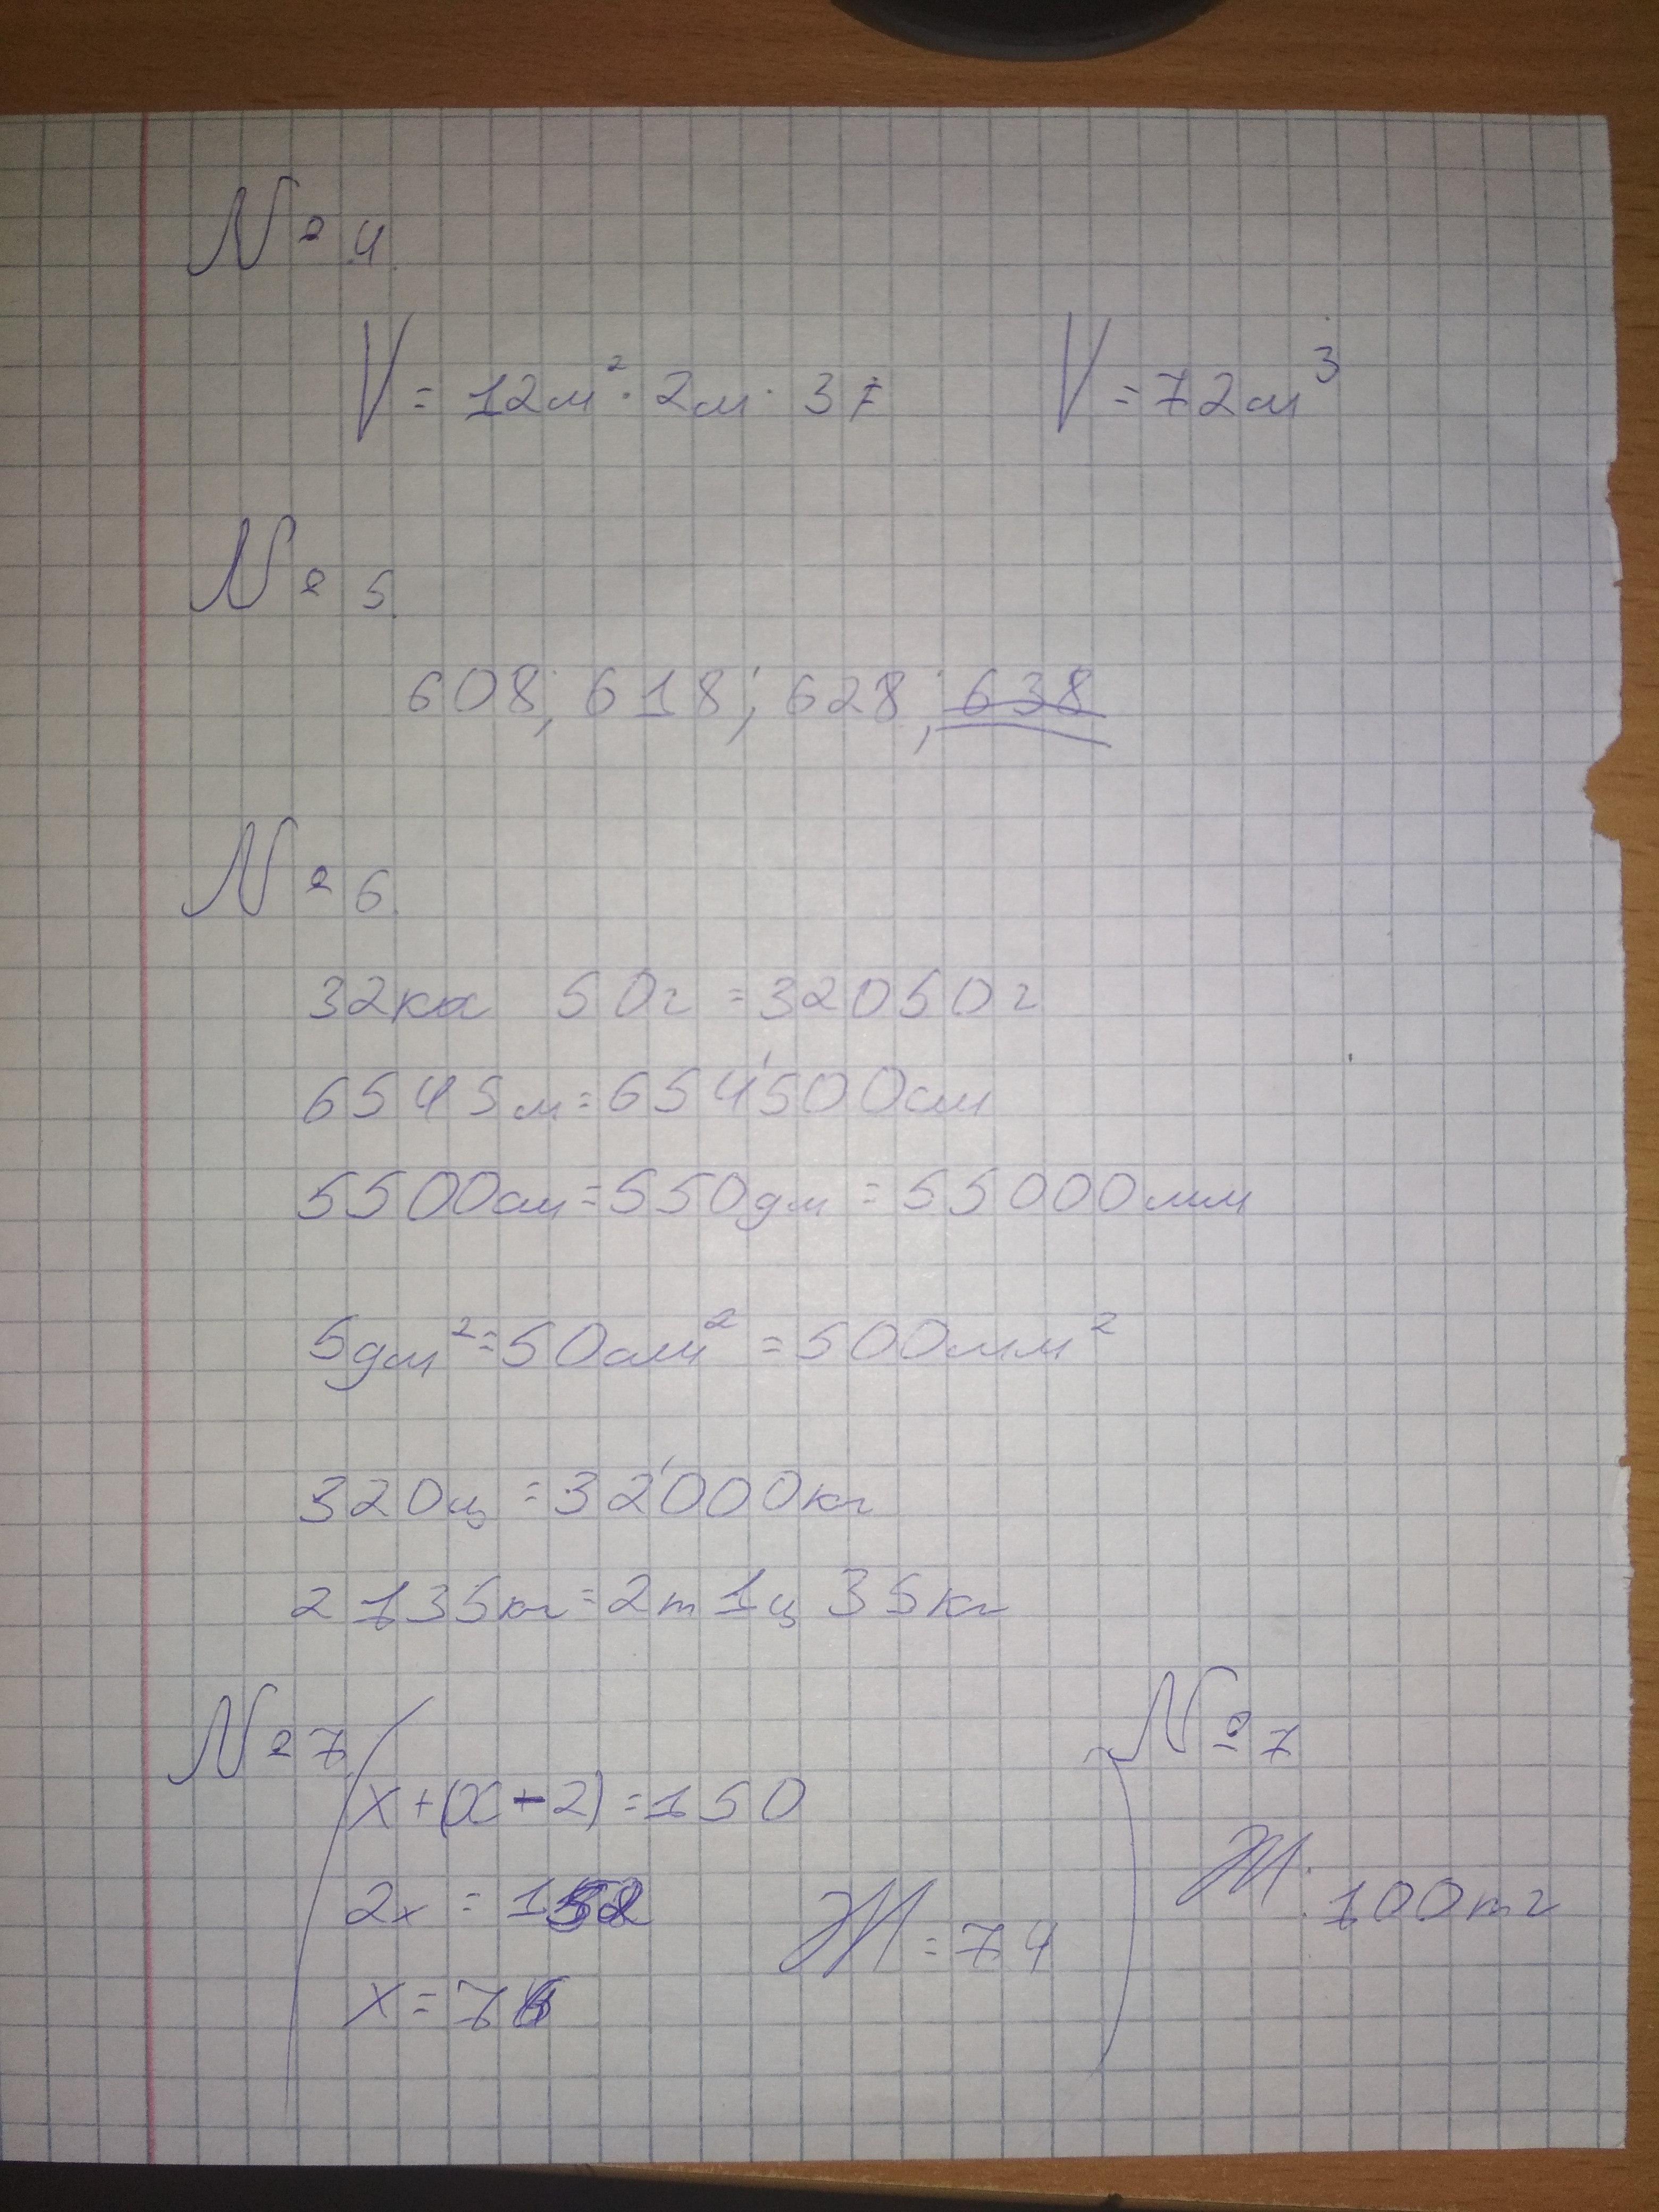 № 4.
V = 12м² · 2м · 3 = V = 72м³
№ 5.
608; 618; 628; 638
№ 6.
32кг 50г = 32050г
6545м = 654'500см
5500см = 550дм = 55000мм
5дм² = 50см² = 500мм²
320ц = 32'000кг
2135кг = 2т 1ц 35кг
№ 7
x + (x - 2) = 150
2x = 152
x = 76
Ж = 74
№ 7
Ж: 100тг